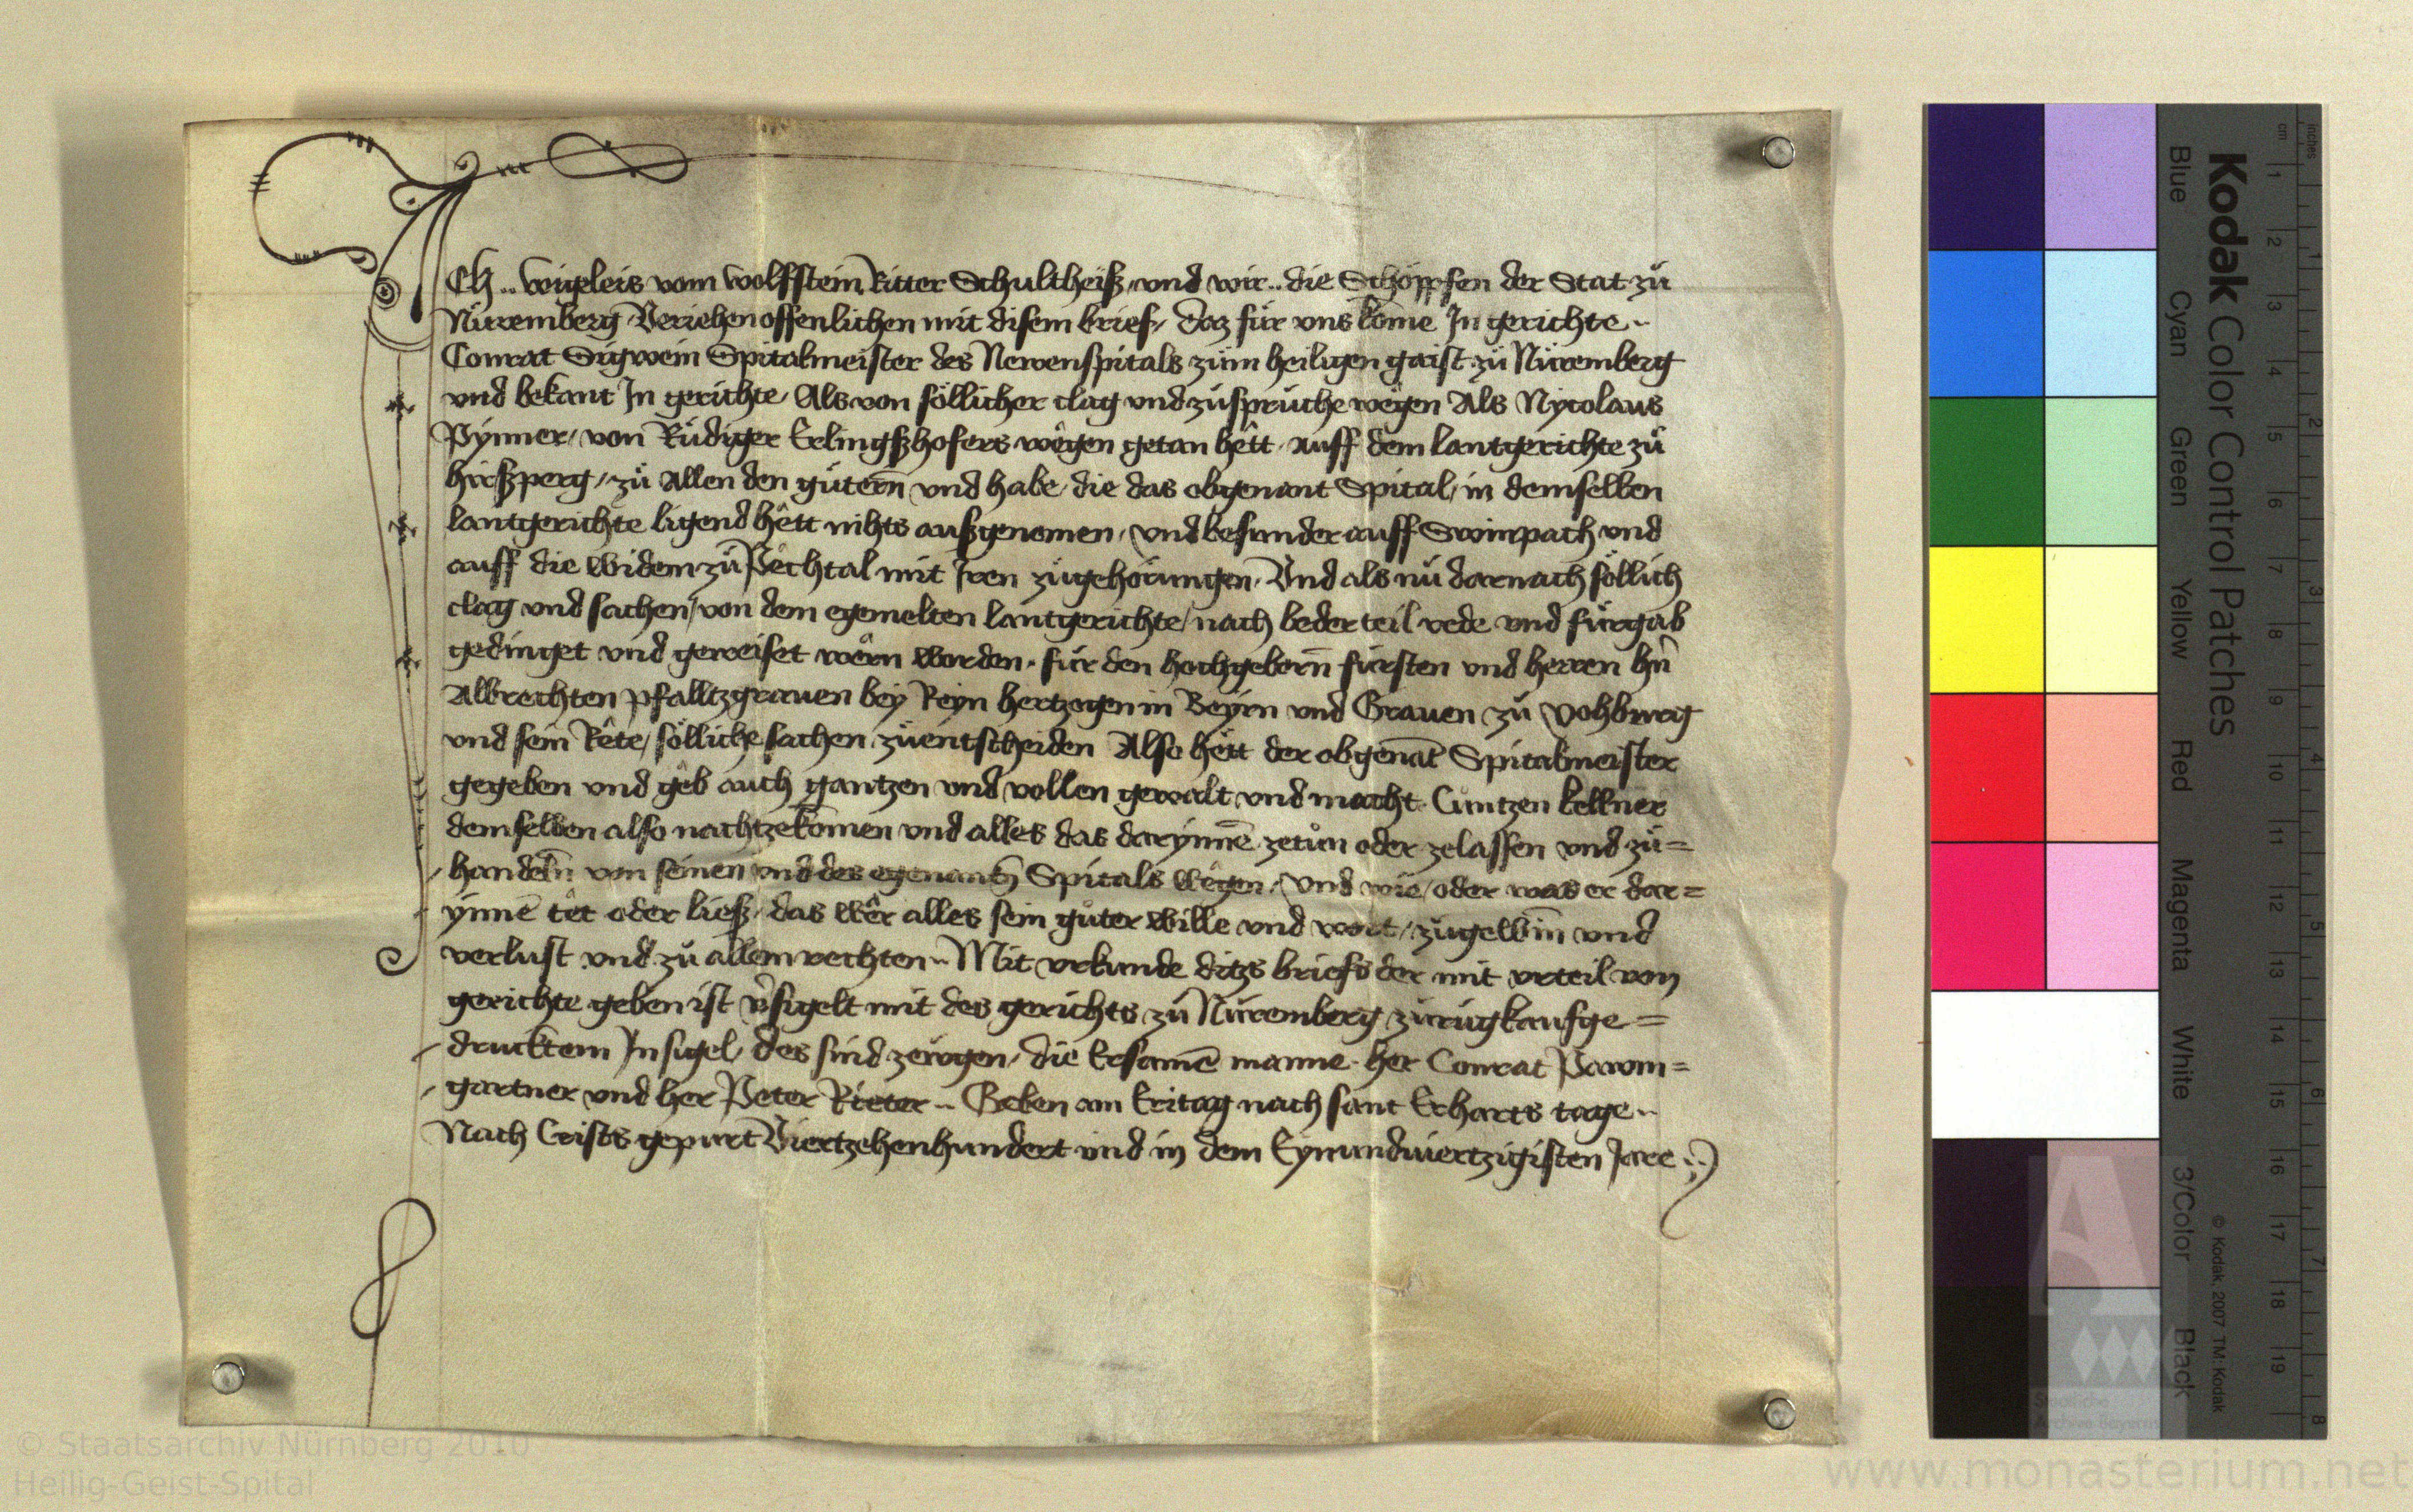 ICh .. wigeleis vom wolfstein Ritter Schultheiß und wir .. die Schöppfen der Stat zů
Nüremberg Veriehen offenlichen mit disem brief, daz für uns kome In gerichte ..
Conrat Sigwein Spitalmeister des Newenspitals zum heiligen gaist zů Nüremberg
und bekant In gerichte, Als von söllicher clag und zůsprüche wegen Als Nycolaus
Pynner, von Rüdiger Erlingßhofers wegen getan hett, auff dem lantgerichte zů
hirßperg, zů Allen den gütern und habe, die das obgenant Spital, in demselben
lantgerichte ligend hett nihts außgenomen, und besunder auff Swinpach und
auff die widem zů Pechtal mit Iren zůgehörungen, Und als nů darnach söllich
clag und sachen, von dem egemelten lantgerichte, nach beder teil rede und fürgab
gedinget und geweiset wern worden, für den hochgebornn fürsten und herren hn
Albrechten pfalltzgrauen bey Reyn hertzogen in Beyrn und Grauen zů Vohburg
und sein Rete, sölliche sachen zůentscheiden Also hett der obgenāt Spitalmeister
gegeben und geb auch gantzen und vollen gewalt und macht Cůntzen kellner
demselben also nachtzekomen und alles das darynnē zetůn oder zelassen und zů=
handeln von seinen und des egenantn Spitals wegen, Und wie, oder was er dar=
ynnē tet oder ließ, das wer alles sein gůter wille und wort, zůgewin und
verlust und zů allem rechten .. Mit urkunde ditzs briefs der mit urteil von
gerichte geben ist v̄sigelt mit des gerichts zů Nüremberg zürügkaufge=
drucktem Insigel, des sind zewgen, die Ersamē manne her Conrat Pawm=
gartner und her Peter Rieter .. Geben am Eritag nach sant Erharts tage ..
Nach Crists gepurt Viertzehenhundert und in dem Eynundviertzigisten Jare ..
Kodak Color Control Patches
Blue Cyan Green Yellow Red Magenta White 3/Color Black
© Kodak, 2007 TM: Kodak
inches 1 2 3 4 5 6 7 8
cm 1 2 3 4 5 6 7 8 9 10 11 12 13 14 15 16 17 18 19
Staatliche
Archive Bayerns
© Staatsarchiv Nürnberg 2010
Heilig-Geist-Spital
www.monasterium.net